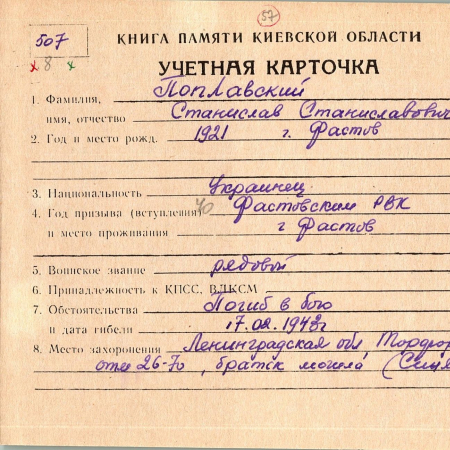 57
507
КНИГА ПАМЯТИ КИЕВСКОЙ ОБЛАСТИ
х 8 х
УЧЕТНАЯ КАРТОЧКА
1. Фамилия, Поплавский
имя, отчество Станислав Станиславович
2. Год и место рожд. 1921 г. Фастов
3. Национальность Украинец
4. Год призыва (вступления) 40 Фастовским РВК
и место проживания г Фастов
5. Воинское звание рядовой
6. Принадлежность к КПСС, ВЛКСМ
7. Обстоятельства Погиб в бою
и дата гибели 17.02.1943г
8. Место захоронения Ленинградская обл
братск могила